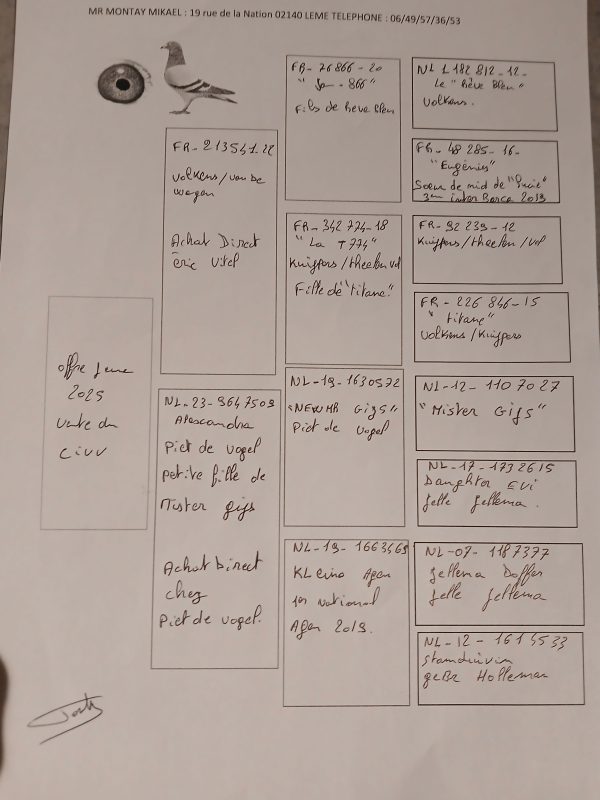 MR MONTAY MIKAEL : 19 rue de la Nation 02140 LEME TELEPHONE : 06/49/57/36/53
offre Jeune
2025
Vente du
CIVV
FR-213541.22
Volkens/Van de
Wegen
Achat Direct
éric Vitel
NL-23-9647509
Alexcandra
Piet de Vogel
petite fille de
Mister gijs
Achat Direct
chez
Piet de Vogel.
FR-76866-20
" - 866"
Fils de Rêve Bleu
FR-342 774-18
"La T 774"
Kuijpers/theelen/Vol
Fille de "titane"
NL-19-1630572
"NEW MR Gijs"
Piet de Vogel
NL-19-1663465
KLeine Agen
1er National
Agen 2019.
NL 1 182 812-12-
Le "Rêve Bleu"
Volkens.
FR-48 285-16-
"Eugénius"
Sœur de nid de
3em inter Barca 2019
FR-92 239-12
Kuijpers/theelen/Vol
FR-226 846-15
"titane"
Volkens/Kuijpers
NL-12-110 70 27
"Mister Gijs"
NL-17-1732615
Daughter EVI
Jelle Jellema.
NL-07-1187377
Jellema Doffer
Jelle Jellema
NL-12-1615533
Stamduivin
geBr Holleman